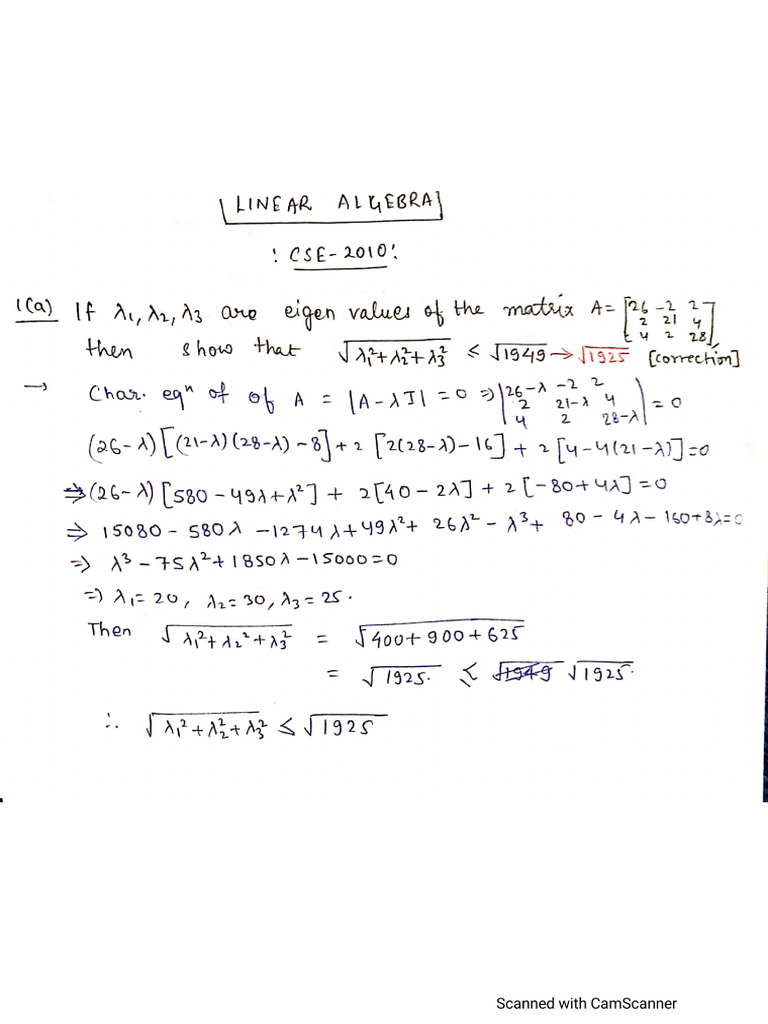 LINEAR ALGEBRA
: CSE-2010:
1(a) If λ1, λ2, λ3 are eigen values of the matrix A = [26 -2 2
2 21 4
4 2 28]
then show that √λ1²+λ2²+λ3² ≤ √1949 → √1925 [correction]
→ Char. eqⁿ of of A = |A-λI| = 0 ⇒ |26-λ -2 2
2 21-λ 4
4 2 28-λ| = 0
(26-λ)[(21-λ)(28-λ)-8] + 2[2(28-λ)-16] + 2[4-4(21-λ)]=0
⇒ (26-λ)[580-49λ+λ²] + 2[40-2λ] + 2[-80+4λ] = 0
⇒ 15080 - 580λ - 1274λ + 49λ² + 26λ² - λ³ + 80 - 4λ - 160 + 8λ = 0
⇒ λ³ - 75λ² + 1850λ - 15000 = 0
⇒ λ1 = 20, λ2 = 30, λ3 = 25.
Then √λ1²+λ2²+λ3² = √400+900+625
= √1925. ≤ √1949 √1925.
∴ √λ1²+λ2²+λ3² ≤ √1925
Scanned with CamScanner